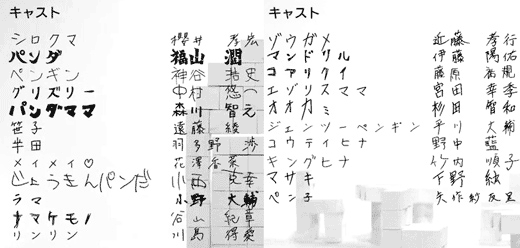 キャスト
シロクマ 櫻井 孝宏
パンダ 福山 潤
ペンギン 神谷 浩史
グリズリー 中村 悠一
パンダママ 森川 智之
笹子 遠藤 綾
半田 羽多野 渉
メイメイ♡ 花澤 香菜
じょうきんパンだ 小西 克幸
ラマ 小野 大輔
ナマケモノ 谷山 紀章
リンリン 川島 得愛
キャスト
ゾウガメ 近藤 孝行
マンドリル 伊藤 陽佑
コアリクイ 藤原 祐規
エゾリスママ 宮田 幸季
オオカミ 杉田 智和
ジェンツーペンギン 平川 大輔
コウテイヒナ 野中 藍
キングヒナ 竹内 順子
マサキ 下野 紘
ペン子 矢作 紗友里